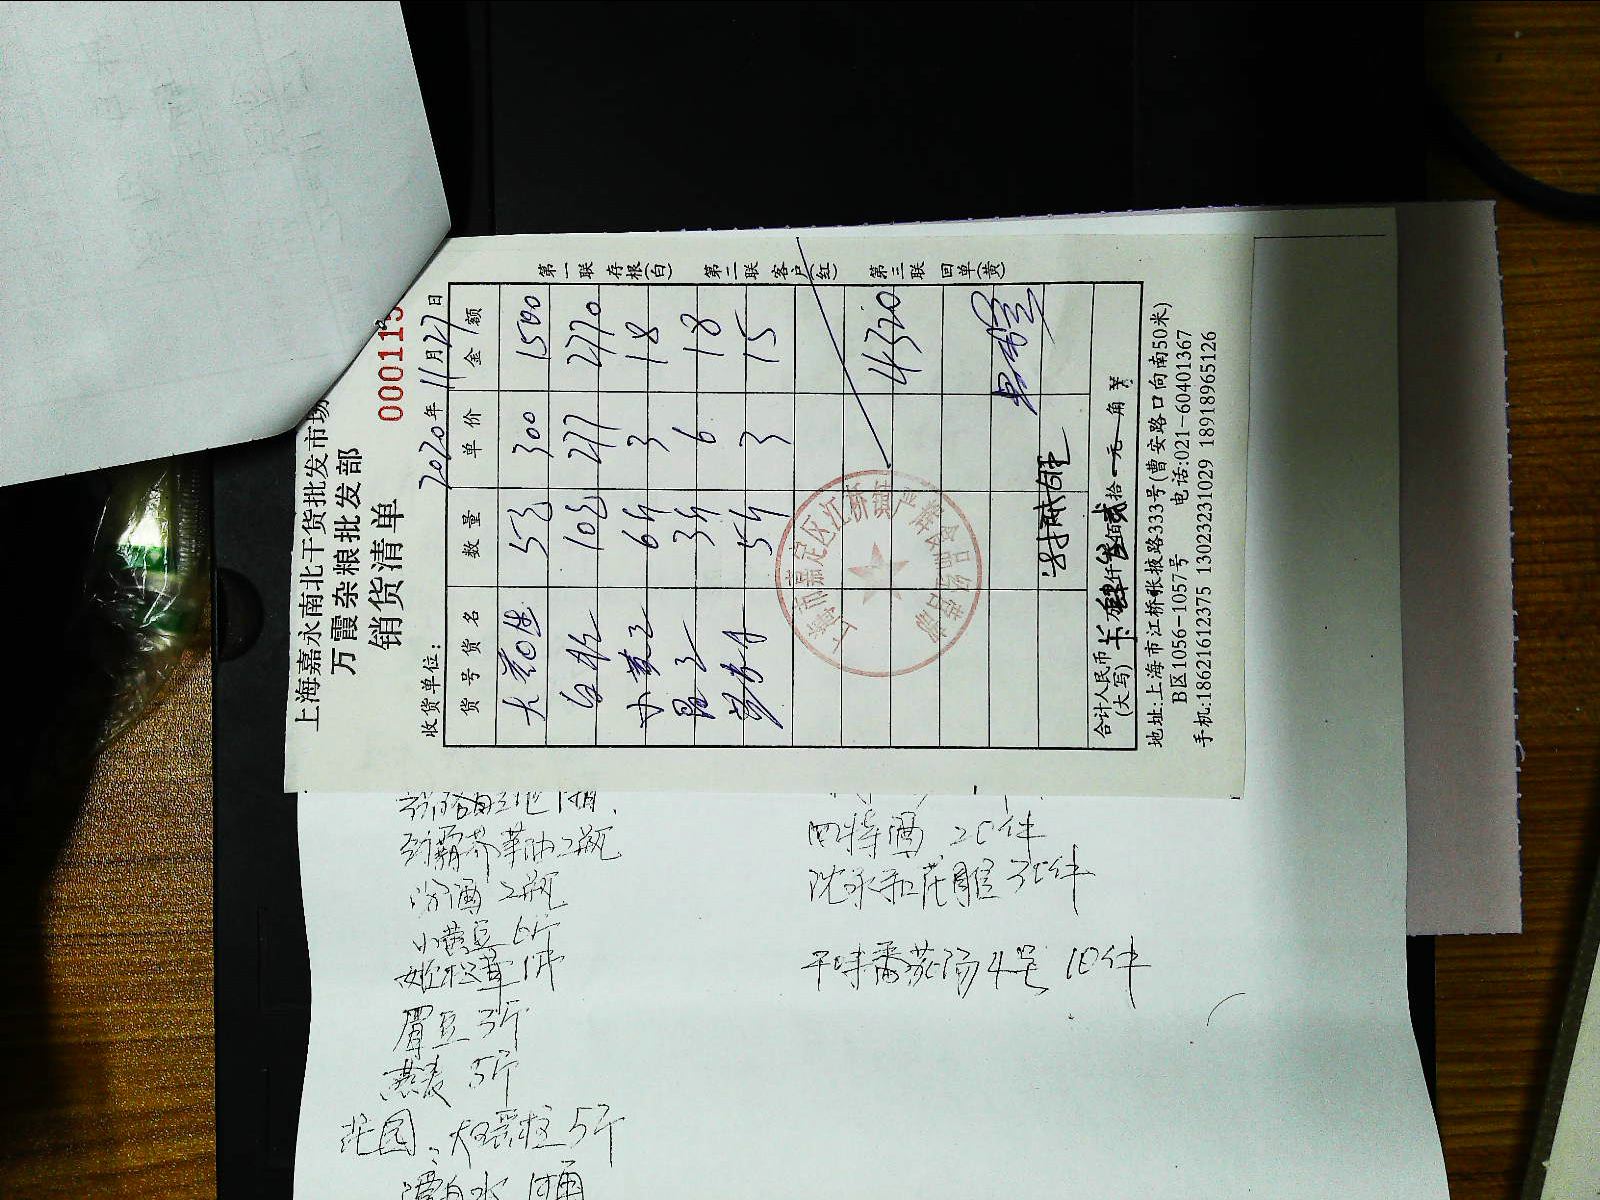 上海嘉永南北干货批发市场
万霞杂粮批发部
销货清单
000115
收货单位: 2020年11月27日
货号货名 数量 单价 金额
大花生 5包 300 1500
10包 277 2770
小黄豆 6斤 3 18
眉豆 3斤 6 18
燕麦 5斤 3 15
4320
合计人民币(大写) 仟 佰贰拾 元 角 分
地址:上海市江桥张掖路333号(曹安路口向南50米)
B区1056-1057号 电话:021-60401367
手机:18621612375 13023231029 18918965126
第一联 存根(白) 第二联 客户(红) 第三联 回单(黄)
上海市嘉定区江桥镇严辉食品经营部
劲霸芥辣油2瓶
汾酒 2瓶
小黄豆 6斤
眉豆 3斤
燕麦 5斤
花园 5斤
四特酒 20件
沈永和花雕 30件
千味番茄汤4号 10件